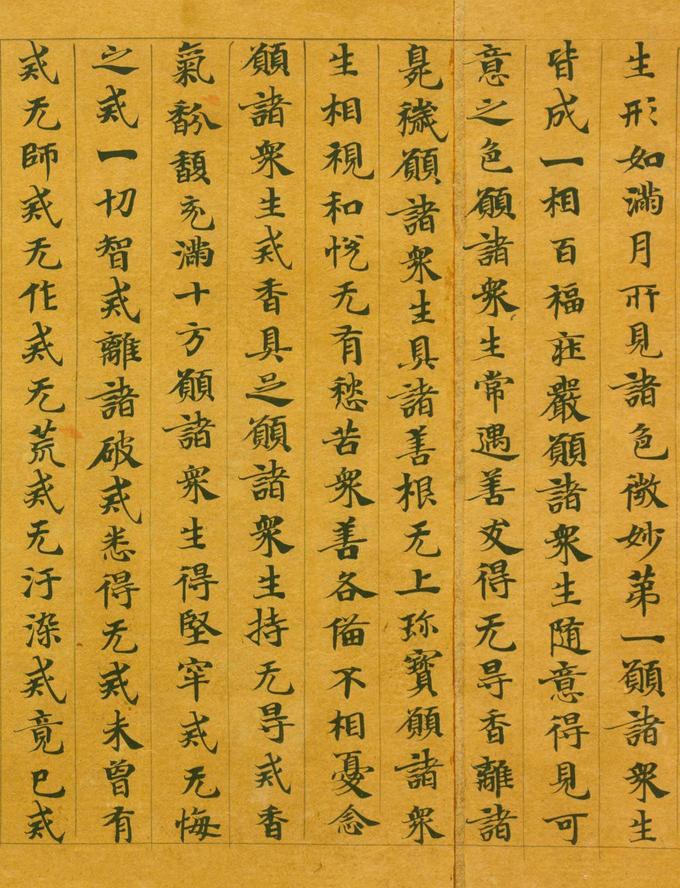 生形如滿月所見諸色微妙第一願諸衆生
皆成一相百福莊嚴願諸衆生随意得見可
意之色願諸衆生常遇善友得无㝵香離諸
臰穢願諸衆生具諸善根无上珎寶願諸衆
生相視和悅无有愁苦衆善各俻不相憂念
願諸衆生戒香具足願諸衆生持无㝵戒香
氣馚馥充滿十方願諸衆生得堅窂戒无悔
之戒一切智戒離諸破戒悉得无戒未曾有
戒无師戒无作戒无荒戒无汙染戒竟已戒